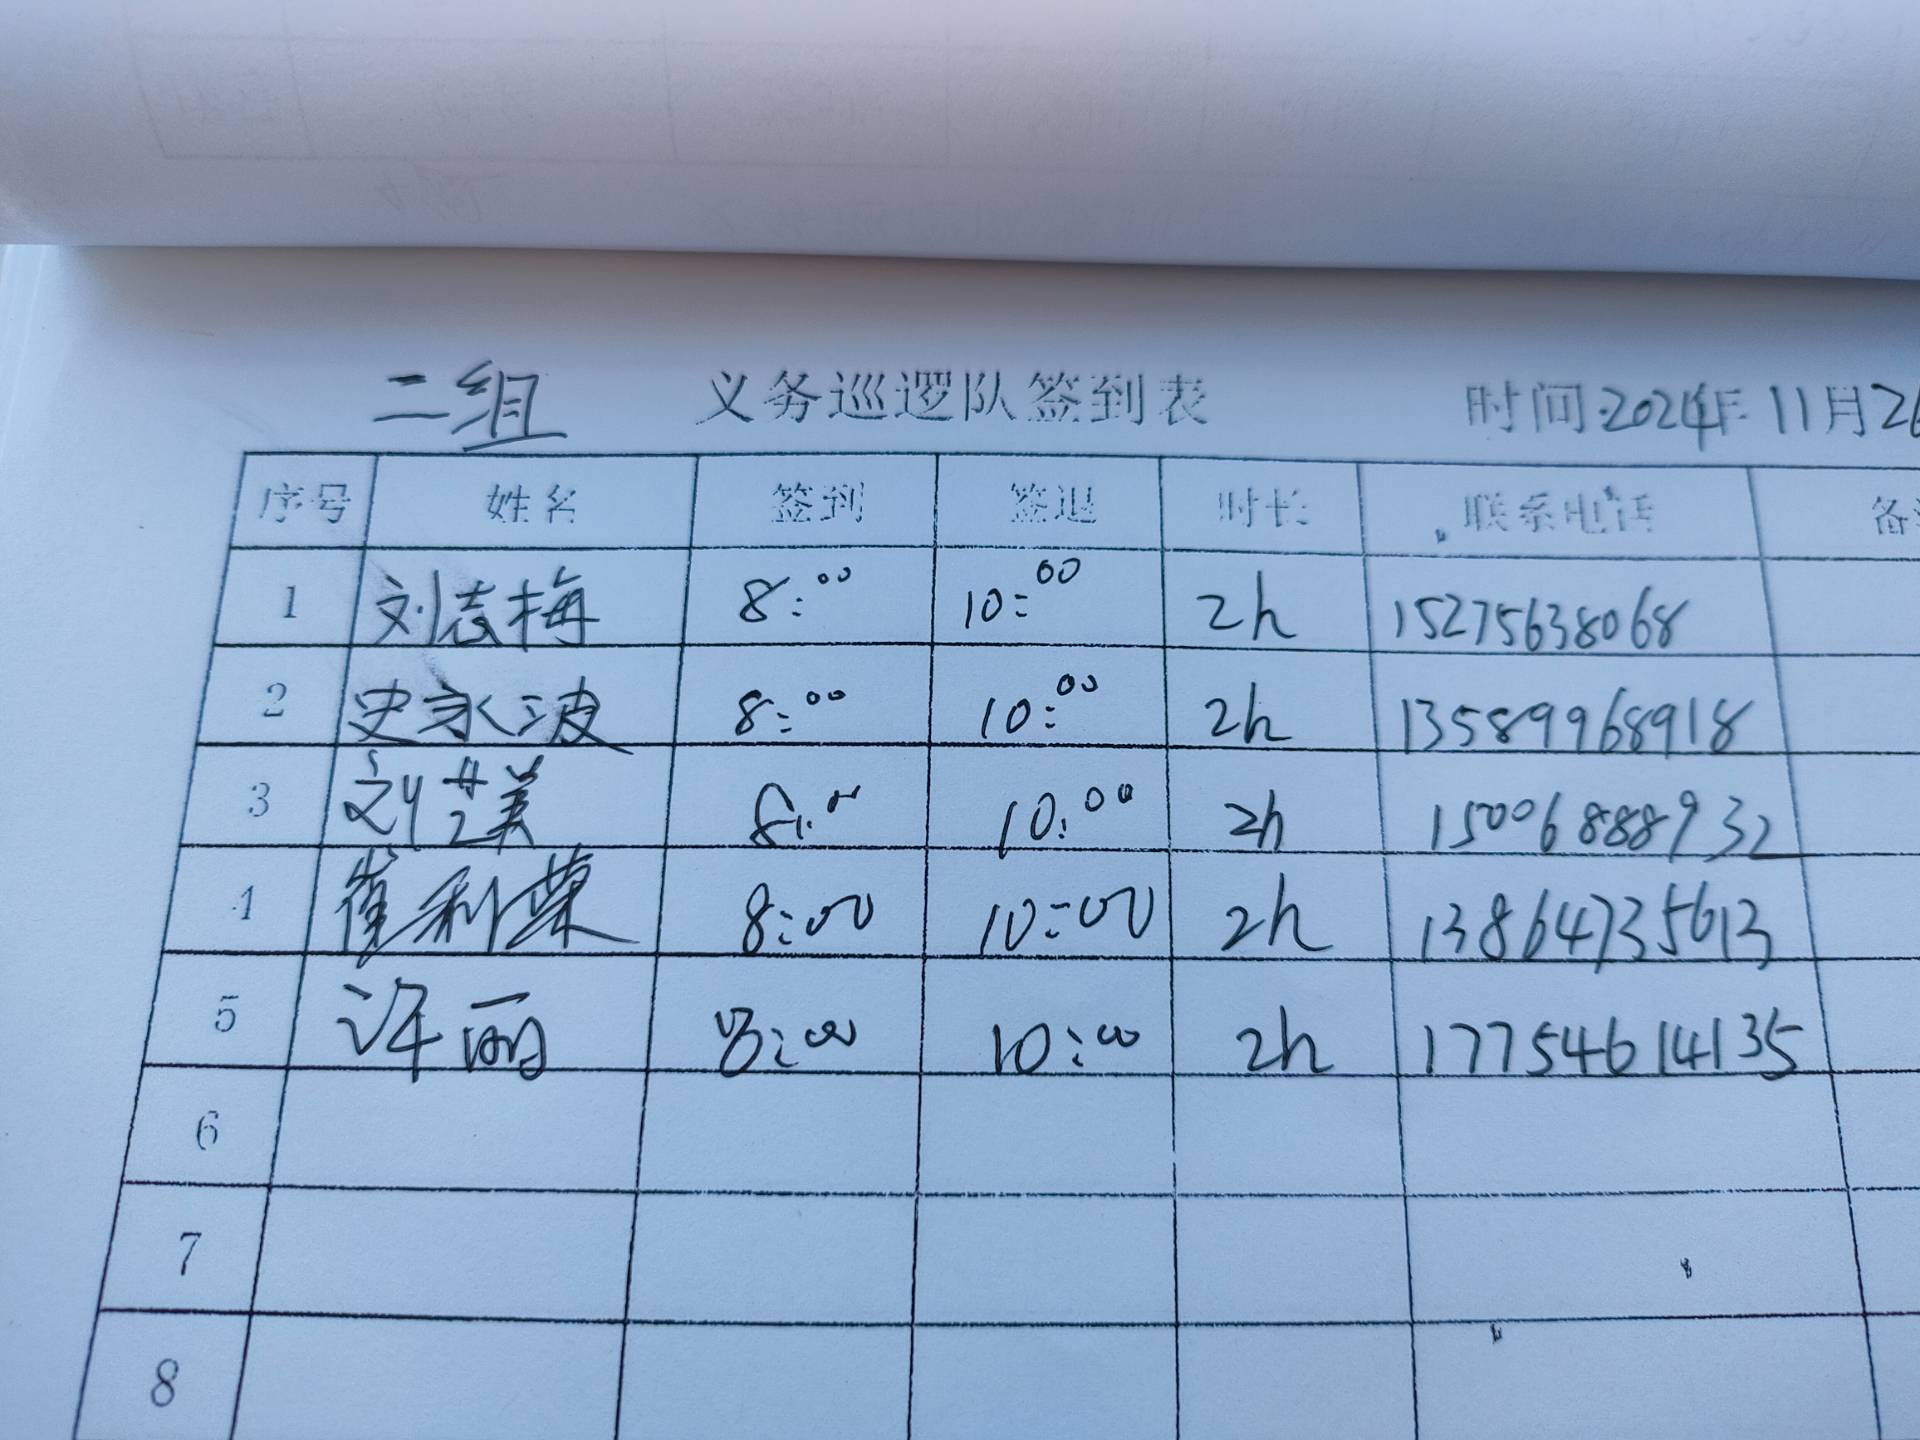 二组 义务巡逻队签到表 时间:2024年11月26
序号 姓名 签到 签退 时长 联系电话 备
1 刘志梅 8:00 10:00 2h 15275638068
2 史永波 8:00 10:00 2h 13589968918
3 刘艺美 8:00 10:00 2h 15006888932
4 崔利荣 8:00 10:00 2h 13864735613
5 许丽 8:00 10:00 2h 17754614135
6
7
8